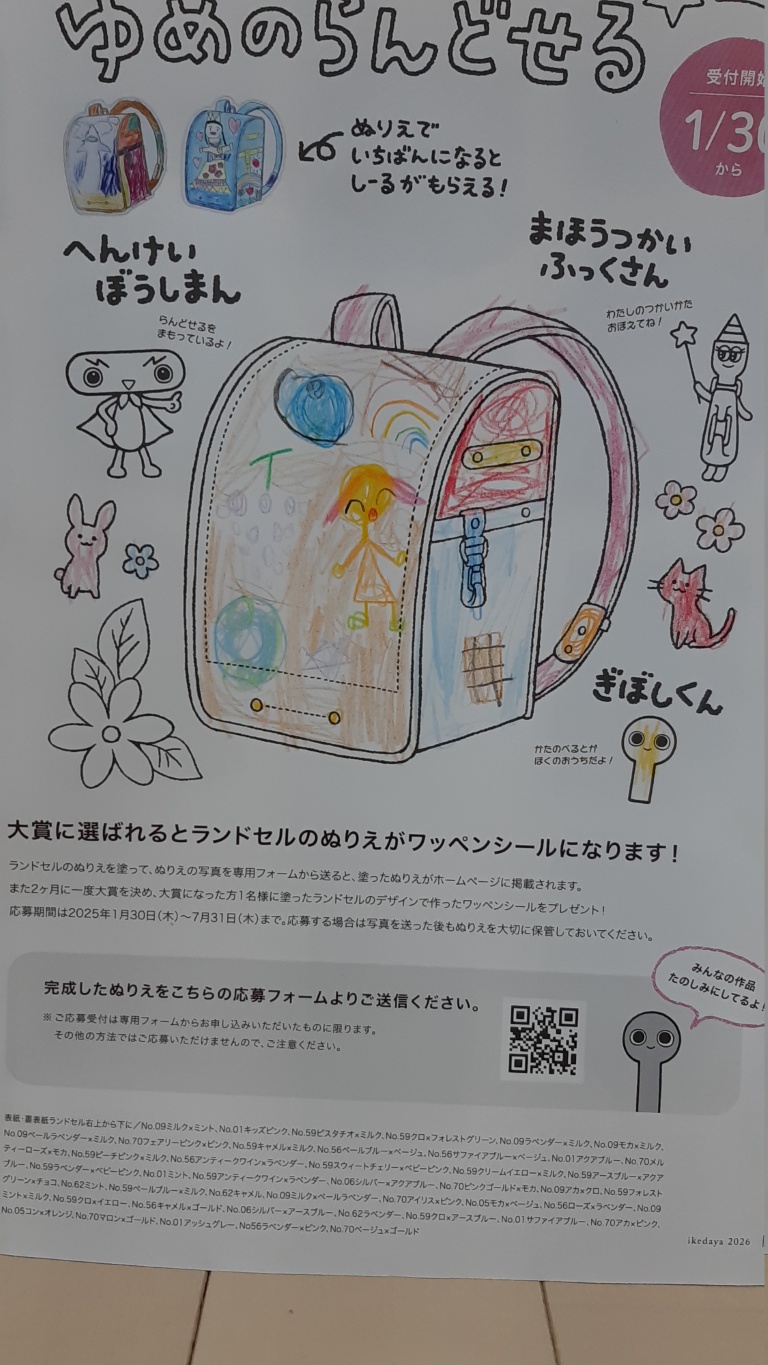 ゆめのらんどせる
受付開始
1/30
から
ぬりえで
いちばんになると
しーるがもらえる!
へんけい
ぼうしまん
らんどせるを
まもっているよ!
まほうつかい
ふっくさん
わたしのつかいかた
おぼえてね!
ぎぼしくん
かたのべるとが
ぼくのおうちだよ!
大賞に選ばれるとランドセルのぬりえがワッペンシールになります!
ランドセルのぬりえを塗って、ぬりえの写真を専用フォームから送ると、塗ったぬりえがホームページに掲載されます。
また2ヶ月に一度大賞を決め、大賞になった方1名様に塗ったランドセルのデザインで作ったワッペンシールをプレゼント!
応募期間は2025年1月30日(木)~7月31日(木)まで。応募する場合は写真を送った後もぬりえを大切に保管しておいてください。
みんなの作品
たのしみにしてるよ!
完成したぬりえをこちらの応募フォームよりご送信ください。
※ご応募受付は専用フォームからお申し込みいただいたものに限ります。
その他の方法ではご応募いただけませんので、ご注意ください。
表紙・裏表紙ランドセル右上から下に/No.09ミルク×ミント、No.01キッズピンク、No.59ピスタチオ×ミルク、No.59クロ×フォレストグリーン、No.09ラベンダー×ミルク、No.09モカ×ミルク、
No.09ペールラベンダー×ミルク、No.70フェアリーピンク×ピンク、No.59キャメル×ミルク、No.56ペールブルー×ベージュ、No.56サファイアブルー×ベージュ、No.01アクアブルー、No.70メル
ティーローズ×モカ、No.59ピーチピンク×ミルク、No.56アンティークワイン×ラベンダー、No.59スウィートチェリー×ベビーピンク、No.59クリームイエロー×ミルク、No.59アースブルー×アクア
ブルー、No.59ラベンダー×ベビーピンク、No.01ミント、No.59アンティークワイン×ラベンダー、No.06シルバー×アクアブルー、No.70ピンクゴールド×モカ、No.09アカ×クロ、No.59フォレスト
グリーン×チョコ、No.62ミント、No.59ペールブルー×ミルク、No.62キャメル、No.09ミルク×ペールラベンダー、No.70アイリス×ピンク、No.05モカ×ベージュ、No.56ローズ×ラベンダー、No.09
ミント×ミルク、No.59クロ×イエロー、No.56キャメル×ゴールド、No.06シルバー×アースブルー、No.62ラベンダー、No.59クロ×アースブルー、No.01サファイアブルー、No.70アカ×ピンク、
No.05コン×オレンジ、No.70マロン×ゴールド、No.01アッシュグレー、No56ラベンダー×ピンク、No.70ベージュ×ゴールド
ikedaya 2026